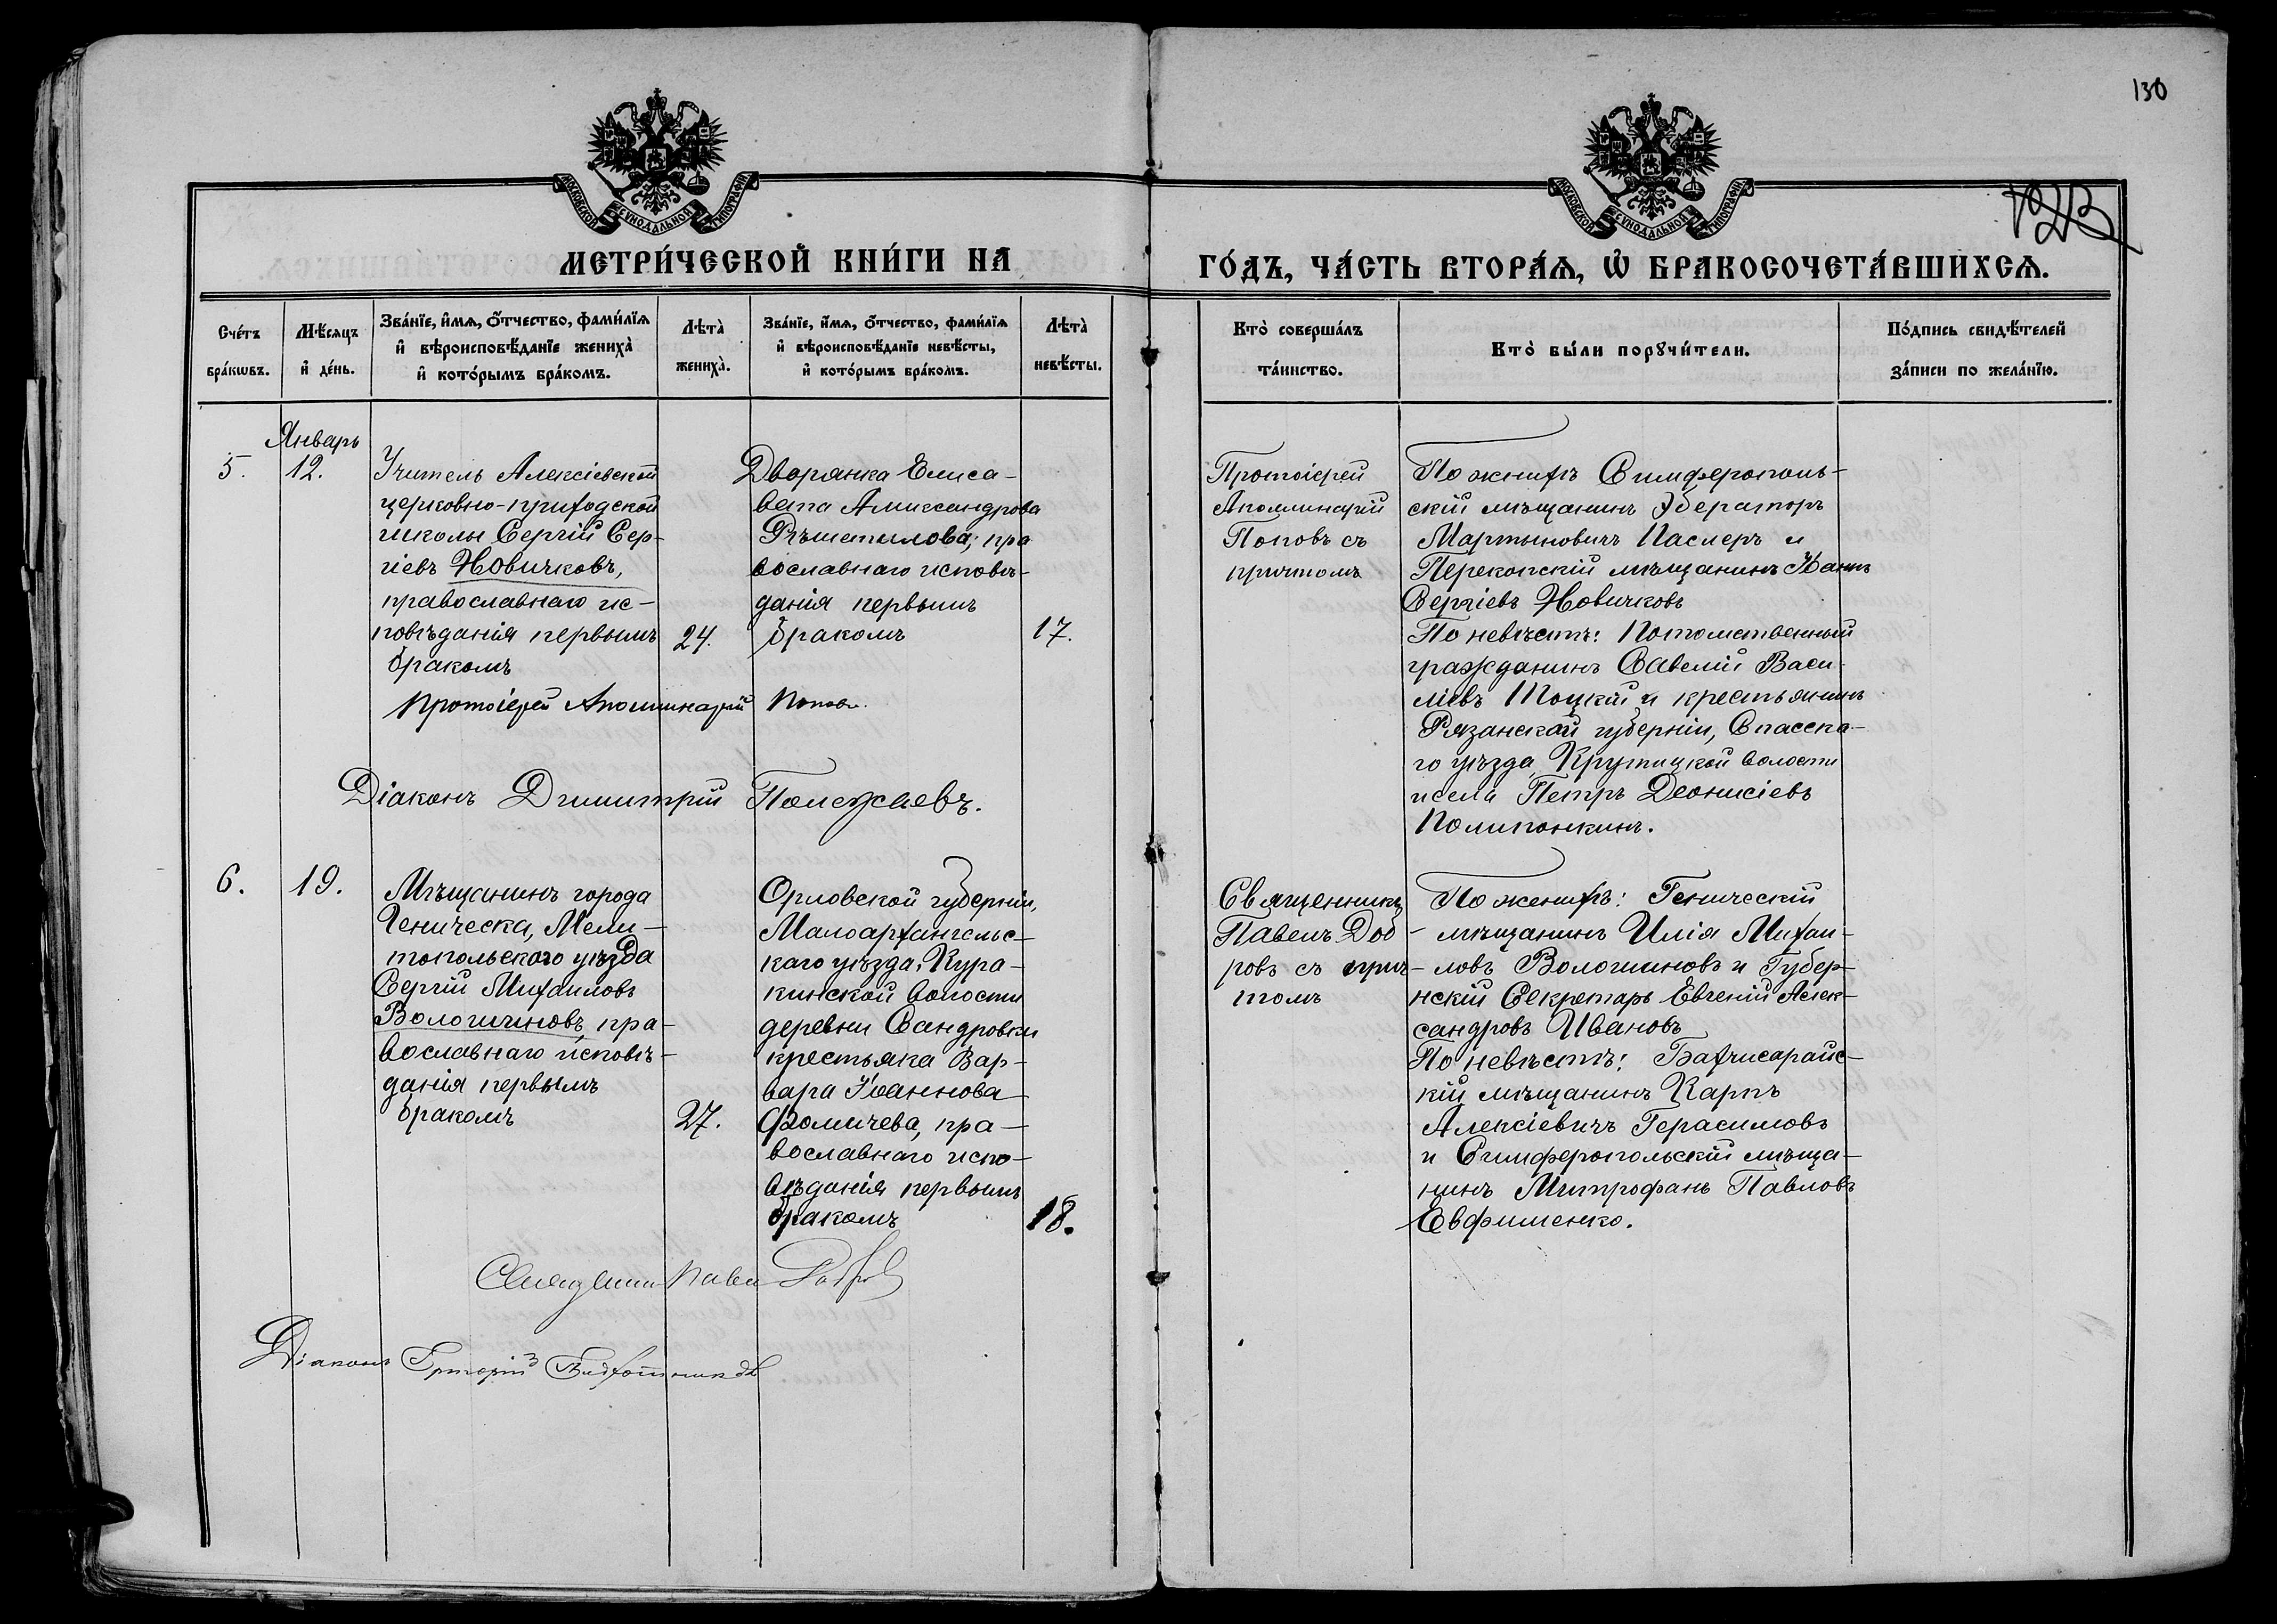 130
МОСКОВСКОЙ СУНОДАЛЬНОЙ ТИПОГРАФІИ
МОСКОВСКОЙ СУНОДАЛЬНОЙ ТИПОГРАФІИ
МЕТРИ́ЧЕСКОЙ КНИ́ГИ НА ГО́ДЪ, ЧА́СТЬ ВТОРА́Я, Ѽ БРАКОСОЧЕТА́ВШИХСЯ.
Сче́тъ бра́кѡвъ.
Мѣ́сяцъ и де́нь.
Зва́нїе, и́мѧ, ѻ́тчество, фами́лїѧ
и вѣроисповѣ́данїе жениха̀
и кото́рымъ бра́комъ.
Лѣта̀ жениха̀.
Зва́нїе, и́мѧ, ѻ́тчество, фами́лїѧ
и вѣроисповѣ́данїе невѣ́сты,
и кото́рымъ бра́комъ.
Лѣта̀ невѣ́сты.
Кто̀ соверша́лъ та́инство.
Кто̀ бы́ли порꙋчи́тели.
По́дпись свидѣ́телей за́писи по жела́нїю.
Январь
5.
12.
Учитель Алексіевской
церковно-приходской
школы Сергій Сер-
гіевъ Новичковъ,
православнаго ис-
повѣданія первымъ
бракомъ
24.
Дворянка Елиса-
вета Александрова
Рѣшетилова, пра
вославнаго исповѣ-
данія первымъ
бракомъ
17.
Протоіерей Аполлинарій Поповъ.
Діаконъ Димитрій Полежаевъ.
Протоіерей
Аполлинарій
Поповъ съ
причтомъ
По женихѣ Симферополь-
скій мѣщанинъ
Мартыновичъ и
Перекопскій мѣщанинъ Іоаннъ
Сергіевъ Новичковъ
По невѣстѣ: Потомственный
гражданинъ Савелій Васи-
ліевъ Тоцкій и крестьянинъ
Рязанской губерніи, Спасска-
го уѣзда Крутицкой волости
и села Петръ Деонисіевъ
6.
19.
Мѣщанинъ города
Геническа, Мели-
топольского уѣзда
Сергій Михаиловъ
Вологшиновъ, пра-
вославнаго исповѣ-
данія первымъ
бракомъ
27.
Орловской губерніи,
Малоархангельс-
каго уѣзда, Кура-
кинской волости
деревни Сандровки
крестьяка Вар-
вара Іоаннова
Фомичева, пра-
вославнаго испо-
вѣданія первымъ
бракомъ
18.
Священникъ Павелъ Добровъ
Діаконъ Григорій
Священникъ
Павелъ Доб-
ровъ съ прич-
томъ
По женихѣ: Геническій
мѣщанинъ Илія Михаи-
ловъ Вологшиновъ и Губер-
нскій Секретарь Евгеній Алек-
сандровъ Ивановъ
По невѣстѣ: Бахчисарайс-
кій мѣщанинъ Карпъ
Алексіевичъ Герасимовъ
и Симферопольскій мѣща-
нинъ Митрофанъ Павловъ
Евфименко.